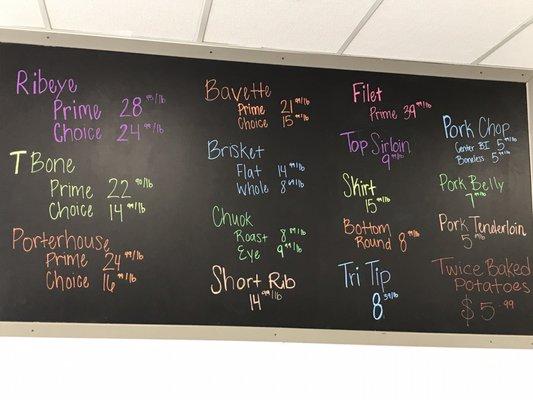 Ribeye
Prime 28 95/lb
Choice 24 99/lb
T Bone
Prime 22 90/lb
Choice 14 99/lb
Porterhouse
Prime 24 99/lb
Choice 16 99/lb
Bavette
Prime 21 99/lb
Choice 15 99/lb
Brisket
Flat 14 99/lb
Whole 8 69/lb
Chuck
Roast 8 89/lb
Eye 9 99/lb
Short Rib
14 99/lb
Filet
Prime 39 99/lb
Top Sirloin
9 99/lb
Skirt
15 99/lb
Bottom
Round 8 99/lb
Tri Tip
8 59/lb
Pork Chop
Center BI 5 99/lb
Boneless 5 99/lb
Pork Belly
7 99/lb
Pork Tenderloin
5 99/lb
Twice Baked
Potatoes
$5.99